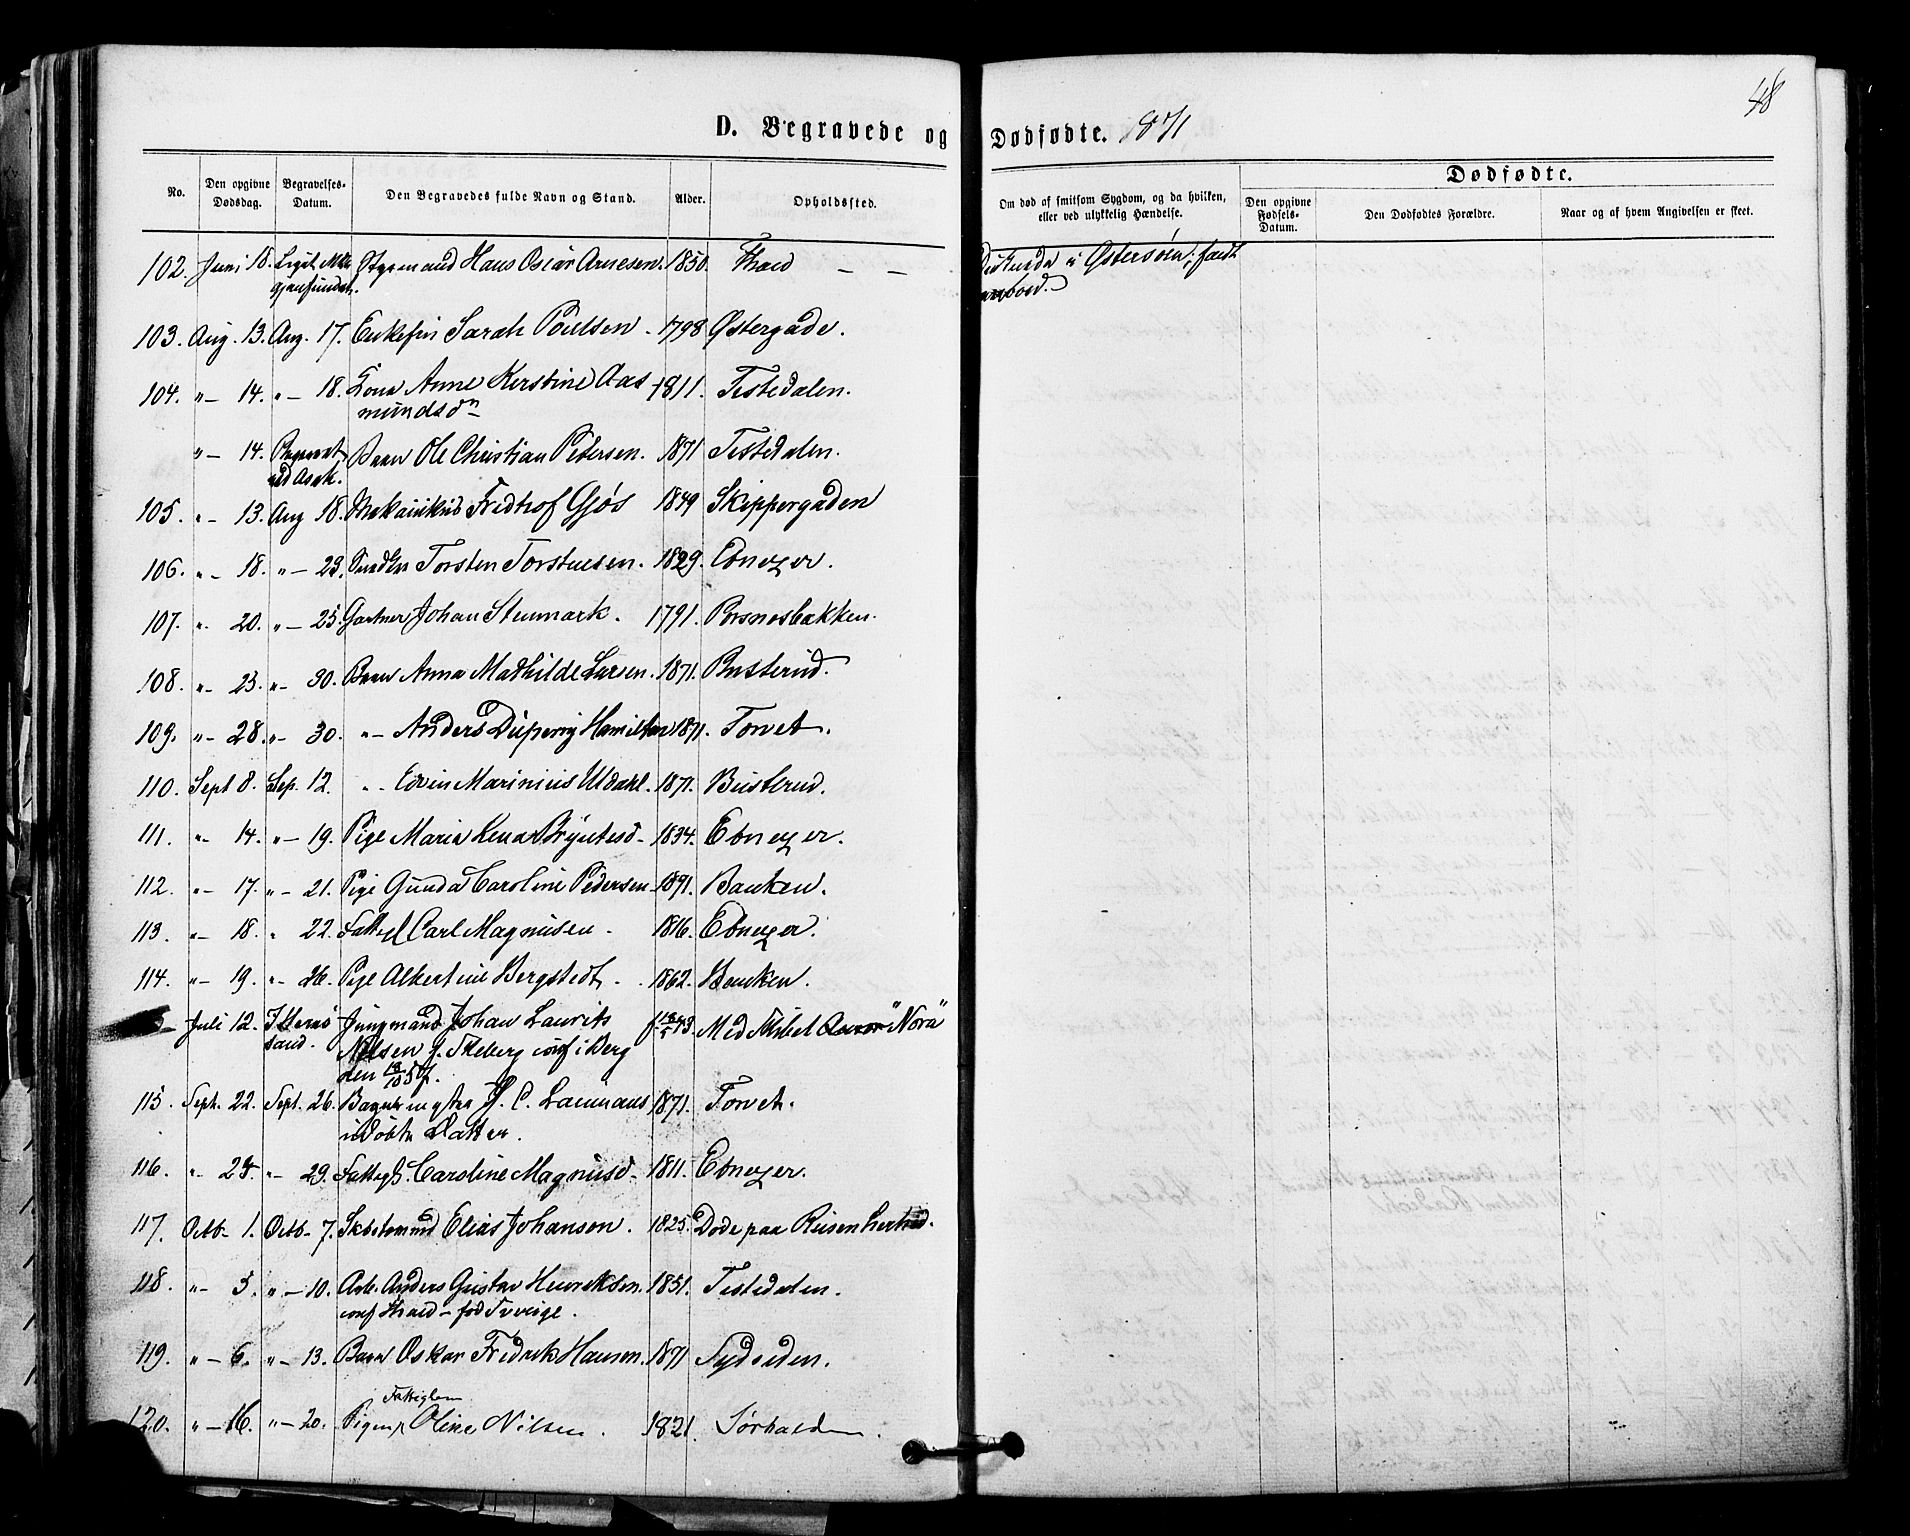 48
D. Begravede og Dødfødte. 1871
No. Den opgivne Dødsdag. Begravelses-Datum. Den Begravedes fulde Navn og Stand. Alder. Opholdssted. Om død af smitsom Sygdom, og da hvilken, eller ved ulykkelig Hændelse. Dødfødte.
Den opgivne Fødsels-Datum. Den Dødfødtes Forældre. Naar og af hvem Angivelsen er skeet.
102. Juni 18. Liget ikke Styrmand Hans Oscar Arnesen. 1850. Fhald — — i Østersøen, faldt
gjenfundet. overbord.
103. Aug. 13. Aug. 17. Enkefru Sarah Poulsen. 1798 Østergade.
104. " — 14. " — 18. Kona Anne Kerstine Aas 1811. Tistedalen.
mundsdn
" — 14. Begravet Barn Ole Christian Petersen. 1871 Tistedalen.
ved Asak.
105. " - 13. Aug 18. Mekanikus Fridthof Gjøs 1849 Skippergaden
106. " - 18. " — 23. Torsten Torstensen. 1829. Ebnezer.
107. " - 20. " — 25. Gartner Johan Stenmark. 1791. Børsnesbakken.
108. " - 23. " - 30. Barn Anna Mathilde Larsen. 1871. Busterud.
109. " - 28. " - 30. " - Anders Hamilton 1871. Torvet.
110. Sept 8. Sep. 12. " - Edvin Marinius Uldahl. 1871. Busterud.
111. " - 14. " — 19. Pige Maria Lena Bryntesd - 1834. Ebnezer.
112. " - 17. " - 21. Pige Gunda Caroline Pedersen 1871. Banken.
113. " - 18. " 22. Fattigl Carl Magnusen - 1816. Ebnezer.
114. " - 19. " - 26. Pige Albertine Bergstedt - 1862. Banken.
Juli 12. Jungmand Johan Laurits f. 18/5 43. Med Skibet "Nora"
sand. Nilsen f. conf i Berg
den
115. Sept. 22. Sept. 26. Bagermester H. C. Laumans 1871. Torvet.
udøbte Datter.
116. " - 25. " - 29. Fattigl. Caroline Magnusd - 1811. Ebnezer.
117. Octb - 1. Octb - 7. Skibstømmd Elias Johansen. 1825. Døde paa Reisen hertid.
118. " - 5. " — 10. Arb. Anders Gustav Henriksen. 1851. Tistedalen.
conf Fhald - fød Sverige.
119. " - 6. " - 13. Barn Oskar Fredrik Hansen. 1871 Sydsiden.
Fattiglem
120. " — 16. " — 20. Pigen Oline Nilsen. 1821. Sørhalden.